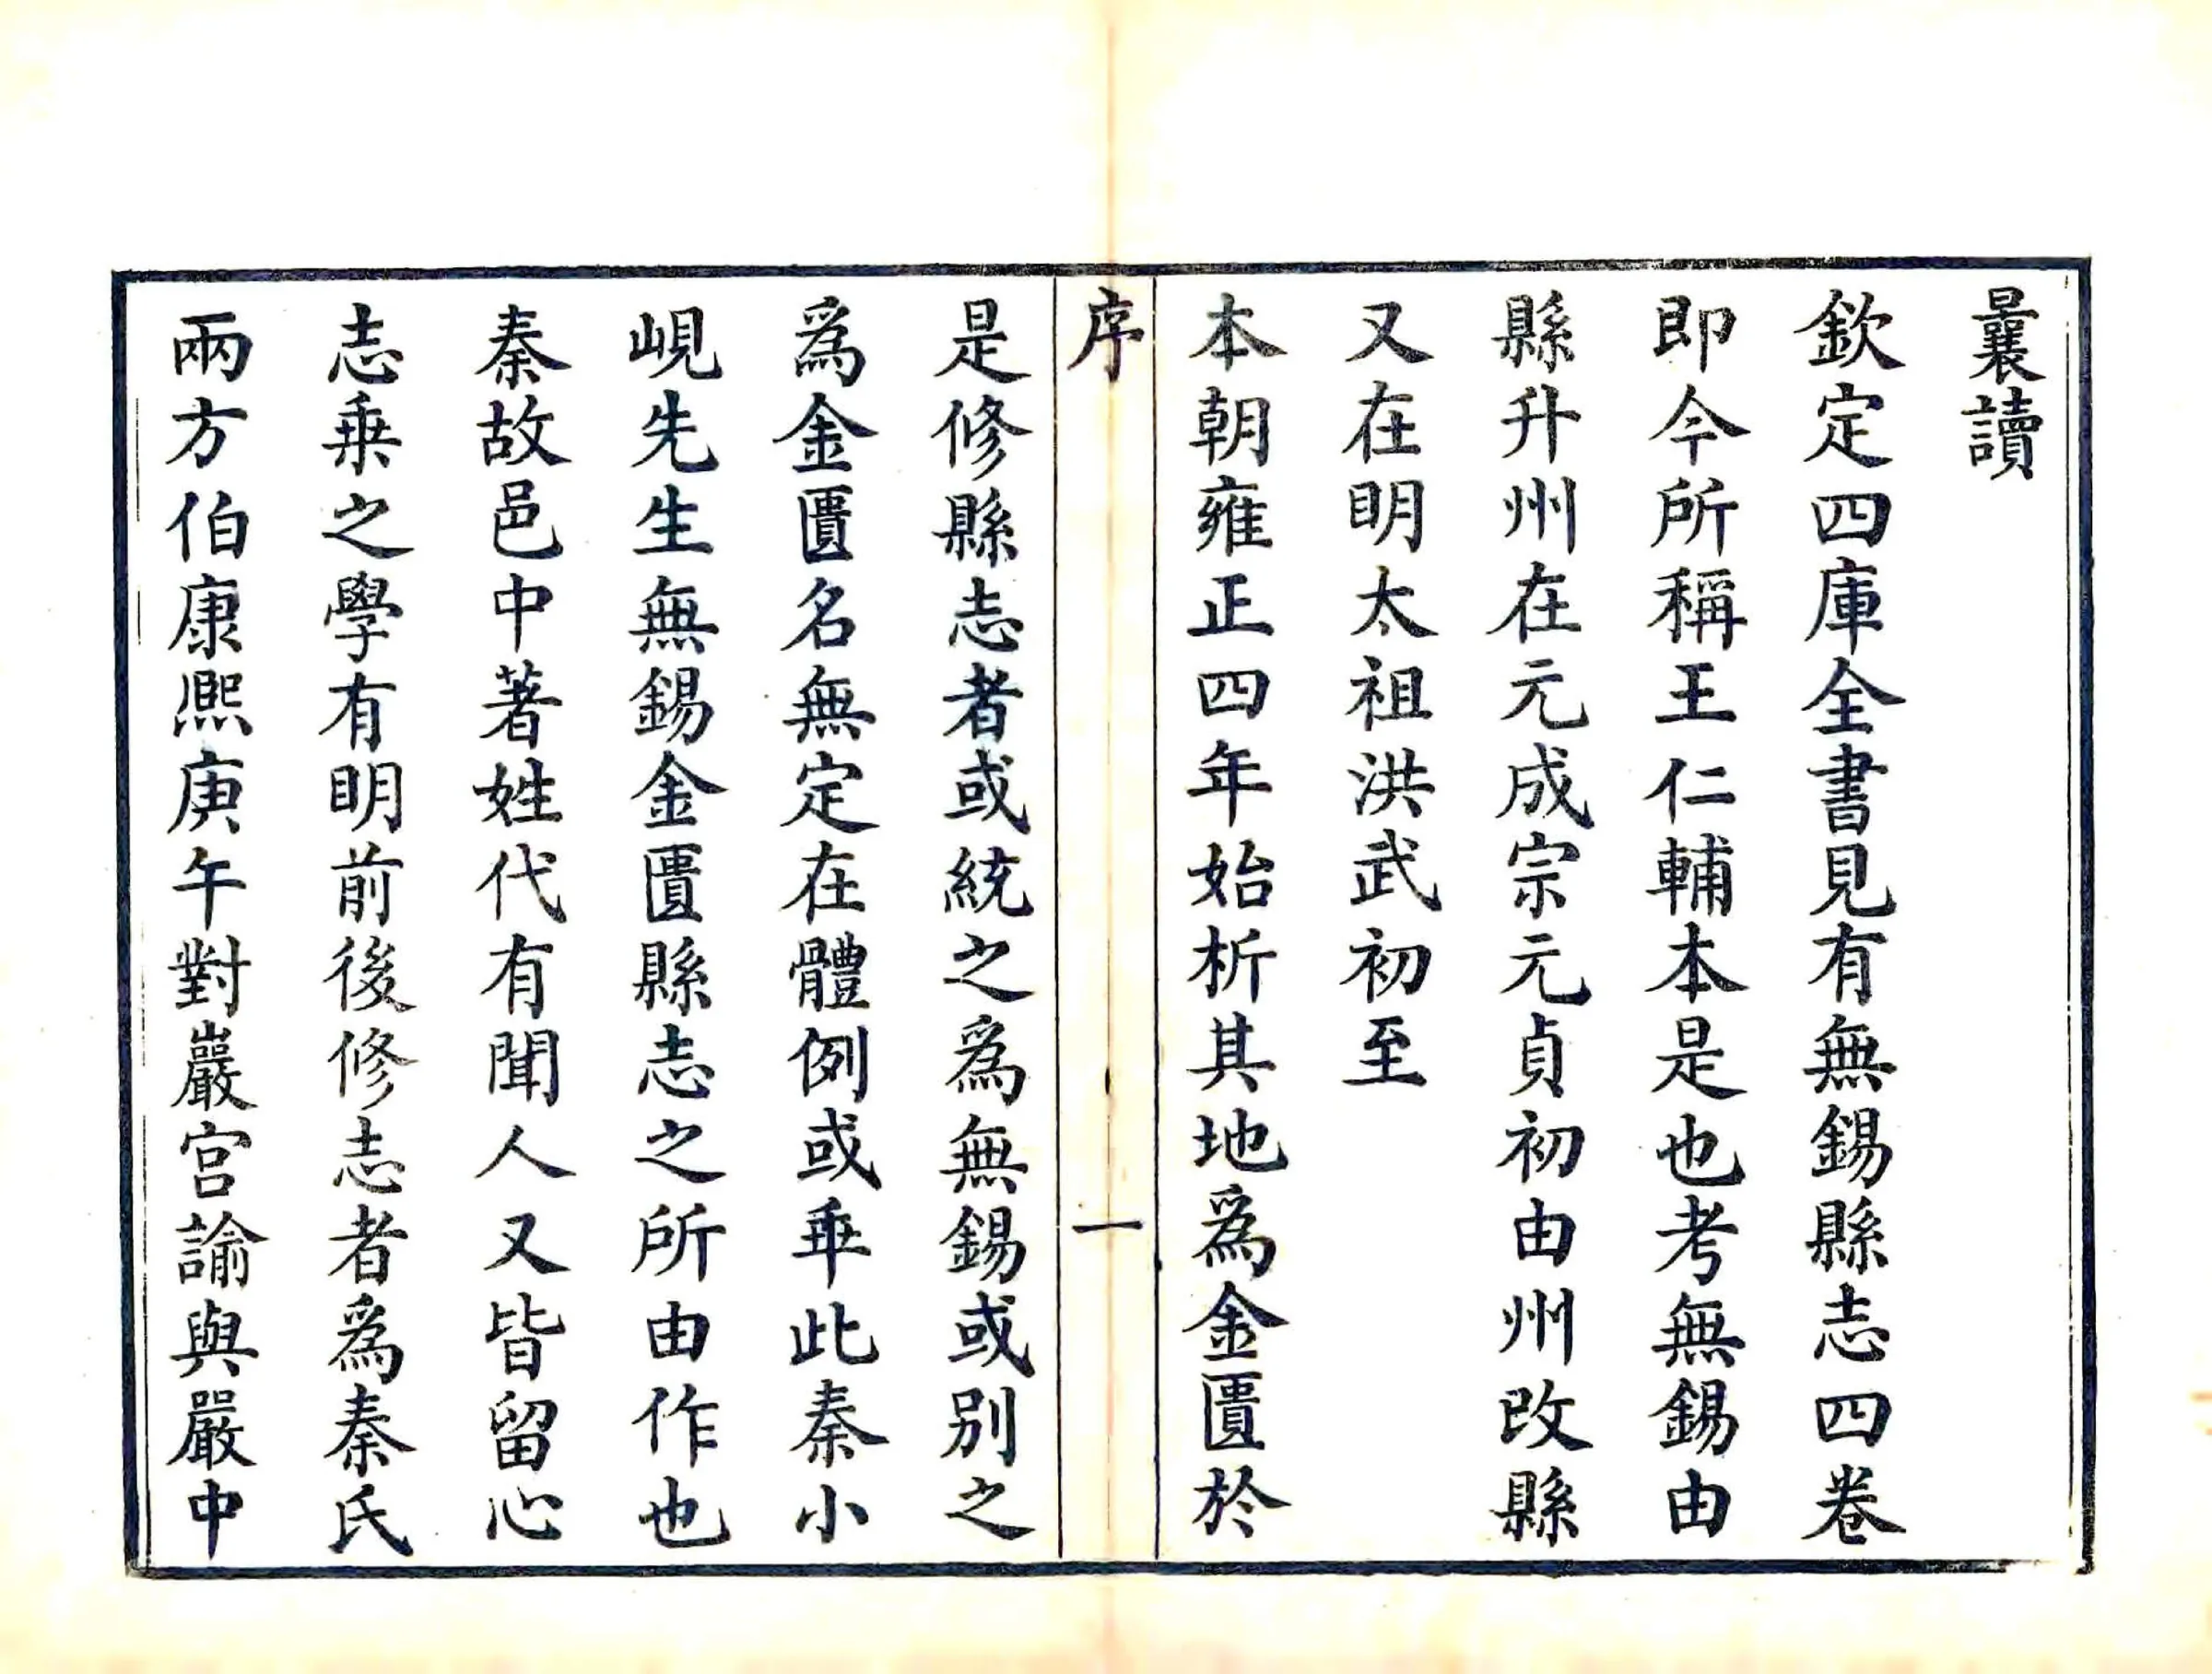 曩讀
欽定四庫全書見有無錫縣志四卷
即今所稱王仁輔本是也考無錫由
縣升州在元成宗元貞初由州改縣
又在明太祖洪武初至
本朝雍正四年始析其地為金匱於
序
一
是修縣志者或統之為無錫或別之
為金匱名無定在體例或乖此秦小
峴先生無錫金匱縣志之所由作也
秦故邑中著姓代有聞人又皆留心
志乘之學有明前後修志者為秦氏
兩方伯康熙庚午對巖宮諭與嚴中